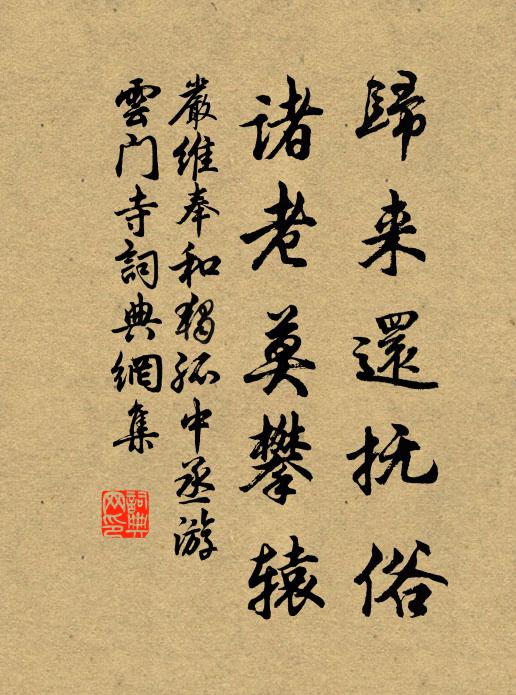 歸来還抚俗
诸老莫攀辕
嚴維奉和獨孤中丞游
雲门寺詞典網集
詞典网印